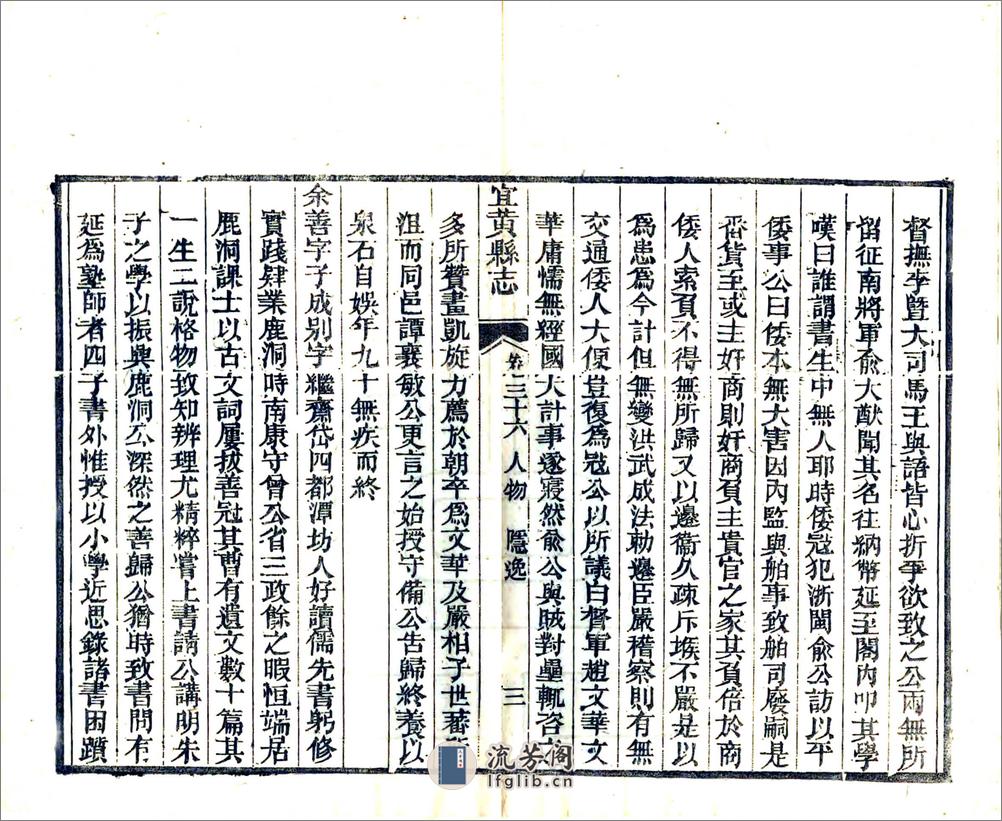 督撫李暨大司馬王與語皆心折爭欲致之公兩無所
留征南將軍俞大猷聞其名往納幣延至閣內叩其學
嘆曰誰謂書生中無人耶時倭寇犯浙閩俞公訪以平
倭事公曰倭本無大害因內監與舶事致舶司廢嗣是
番貨至或主奸商則奸商負主貴官之家其負倍於商
倭人索負不得無所歸又以邊衞久疎斥堠不嚴是以
為患為今計但無變洪武成法勅邊臣嚴稽察則有無
交通倭人大便豈復為寇公以所議白督軍趙文華文
華庸懦無經國大計事遂寢然俞公與賊對壘輒咨
宜黃縣志 卷三十六人物 隱逸 三
多所贊畫凱旋力薦於朝卒為文華及嚴相子世蕃
沮而同邑譚襄敏公更言之始授守備公告歸終養以
泉石自娛年九十無疾而終
余善字子成別字繼齋岱四都潭坊人好讀儒先書躬修
實踐肄業鹿洞時南康守曾公省三政餘之暇恒端居
鹿洞課士以古文詞屢拔善冠其曹有遺文數十篇其
一生二說格物致知辨理尤精粹嘗上書請公講明朱
子之學以振興鹿洞公深然之善歸公猶時致書問有
延為塾師者四子書外惟授以小學近思錄諸書困躓
流芳閣
lfglib.cn